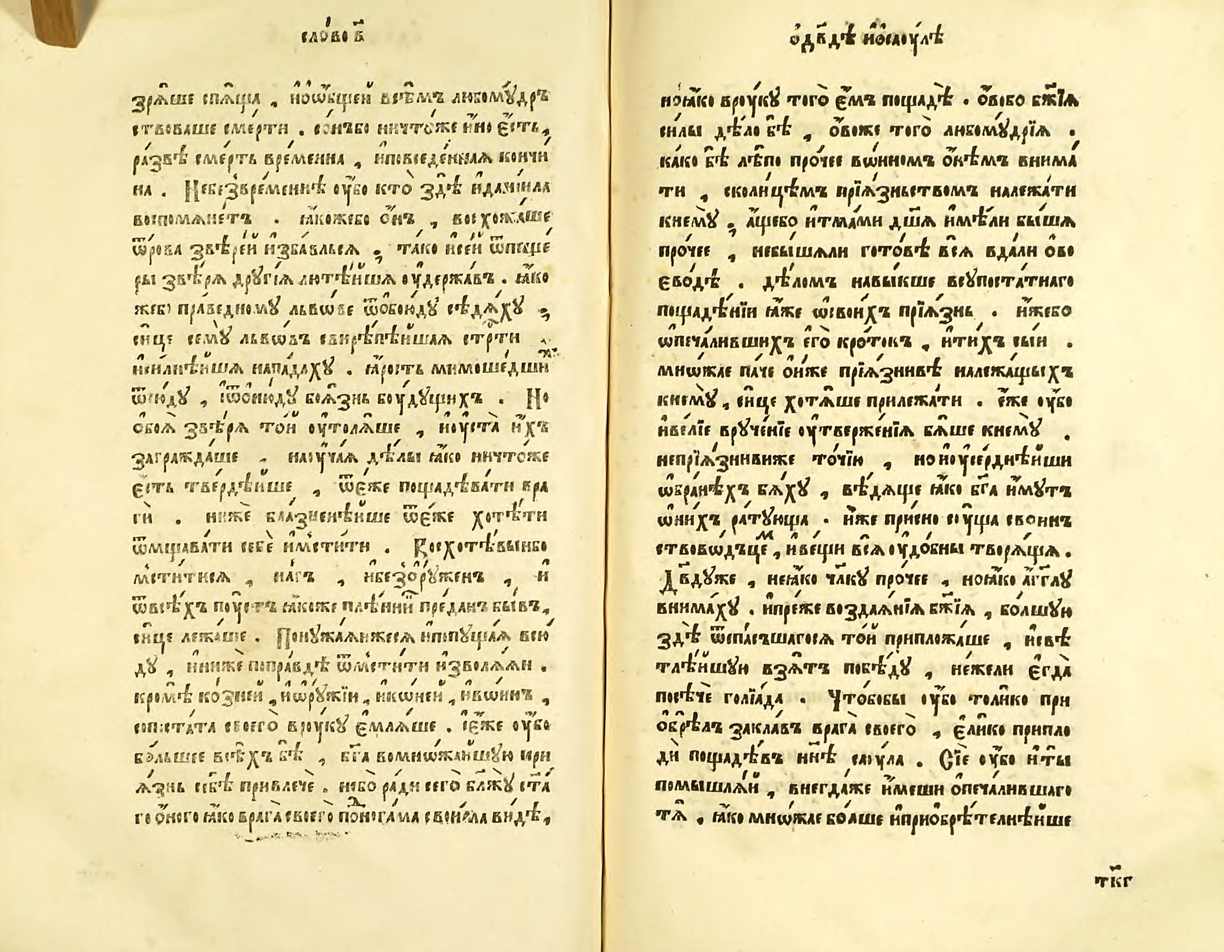 сло́во в҃
зрѧ́ше спѧ́ща , но̀ѡбщей все́мъ любомꙋдръ
ствоваше сме́рти . со́нъбо ничто́же и҆но є҆́сть,
ра́звѣ сме́рть вре́менна , и҆повседе́ннаѧ кончи
на . Небезвре́меннѣ оу҆́бо кто̀ здѣ̀ и҆даниила
воспомѧне́тъ . ꙗ҆́кожебо о҆́нъ , восхожда́ше
ѿро́ва звѣре́й и҆зба́вльсѧ , та́ко и҆се́й ѿпеще
ры звѣ́рѧ дрꙋгі́ѧ лютѣ́йшѧ оу҆держа́въ . ꙗ҆́ко
жебо пра́ведномꙋ льво́ве ѿѻбою́дꙋ сѣдѧ́хꙋ ,
си́це семꙋ̀ льво́въ свирѣпѣ́йшаѧ стрⷭ҇ти
и҆си́лнѣйшѧ напада́хꙋ . ꙗ҆́рость мимоше́дши
ѿсю́дꙋ , і҆ѿѻнюдꙋ боѧ́знь бо́ꙋдꙋщихъ . Но
ѻбоѧ̀ звѣ́рѧ то́й оу҆толѧ́ше , и҆оу҆ста̀ и҆́хъ
загражда́ше . наоу҆ча́ѧ дѣ́лы ꙗ҆́ко ничто́же
є҆́сть тве́рдѣйше , ѿє҆́же пощадѣва́ти вра
гѝ . нижѐ бла́зненѣйше ѿє҆́же хотѣ́ти
ѿмщава́ти себѐ и҆мсти́ти . Восхотѣ́выибо
мсти́тисѧ , на́гъ , и҆безо́рꙋженъ , и҆
ѿвсѣ́хъ пꙋ́стъ ꙗ҆́коже плѣ́нній пре́данъ бы́въ,
си́це лежа́ше . Понꙋжа́ѧижесѧ и҆пꙋща́ѧ всю
дꙋ , и҆нижѐ попра́вдѣ ѿмсти́ти и҆зволѧ́ѧи .
кромѣ̀ ко́зней , и҆ѡ҆рꙋ́жіи , и҆ко́ней , и҆во́инъ ,
сопоста́та своего̀ врꙋ́кꙋ є҆млѧ́ше . і҆є҆́же оу҆́бо
бо́льшее всѣ́хъ бѣ̀ , бг҃а вомно́жайшꙋю при
ѧ́знь себѣ̀ привлечѐ . ни́бо ра́ди сегѡ̀ блажꙋ̀ ста́
го ѻ҆́ного ꙗ҆́ко врага̀ своего̀ понога́ма свои́ма ви́дѣ,
ѻ҆дв҃дѣ и҆ѻ҆саꙋ́лѣ
но̀ꙗ҆́ко врꙋ́кꙋ того̀ є҆́мъ пощадѣ̀ . ѻ҆́вобо бж҃їѧ
си́лы дѣ́ло бѣ̀ , ѻ҆́воже того̀ любомꙋ́дрїѧ .
ка́ко бѣ̀ лѣ́по про́чее во́иномъ ѻ҆́нѣмъ внима́
ти , сколи́цѣмъ прїѧ́зньствомъ належа́ти
кнемꙋ̀ , а҆́щебо и҆тма́ми дш҃ѧ и҆мѣ́ли бы́шѧ
про́чее , небы́шѧли гото́вѣ всѧ̀ вда́ли ѻ҆во
є҆во́дѣ . дѣ́ломъ навы́кше всꙋпоста́тнаго
пощадѣ́нїи ꙗ҆́же ѡ҆свои́хъ прїѧ́знь . и҆́жебо
ѡ҆печа́лившихъ є҆го̀ кро́токъ , и҆ти́хъ сы́и .
мно́жае па́че ѻ҆ни́же прїѧ́знивѣ належа́щыхъ
кнемꙋ̀ , си́це хотѧ́ше прилежа́ти . є҆́же оу҆́бо
и҆ве́лїе врꙋче́нїе оу҆твержє́нїѧ бѧ́ше кнемꙋ̀ .
непрїѧ́знививже то́чїю , но́и҆оу҆се́рднѣйши
ѡ҆бране́хъ бѧ́хꙋ , вѣ́дѧще ꙗ҆́ко бг҃а и҆́мꙋтъ
ѡ҆ни́хъ ра́тꙋюща . и҆́же при́сно сꙋ́ща своим
ствовѡ́дъцемъ , и҆ве́щи всѧ̀ оу҆до́бны творѧ́щїѧ .
Дв҃дꙋже , неꙗ҆́ко чл҃кꙋ про́чее , ноꙗ҆́ко а҆́гг҃лꙋ
внима́хꙋ . и҆пре́же воздаѧ́нїѧ бж҃їѧ , бо́льшꙋю
здѣ̀ ѿспа́сшагосѧ то́й припложа́ше , и҆свѣ
тлѣ́йшꙋи взѧ́тъ побѣ́дꙋ , не́жели є҆гда̀
посѣ́че голїа́да . Что́бобы оу҆́бо толи́ко при
ѻ҆брѣ́лъ закла́въ врага̀ своего̀ , є҆ли́ко припло
дѝ пощадѣ́въ нн҃ѣ саꙋ́ла . Сїѐ оу҆́бо и҆ты̀
помышлѧ́й , внегда́же и҆́меши ѻ҆печа́лившаго
тѧ̀ , ꙗ҆́ко мно́жае бо́лше и҆приѻбрѣ́телнѣйше
тк҃г